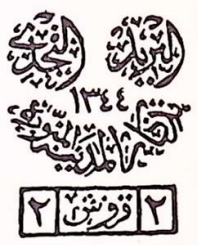 البريد النجدي
١٣٤٤
تذكار المدينة المنورة
٢ قروش ٢